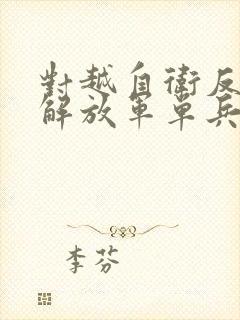 對越自衛反
解放軍單兵
李芬